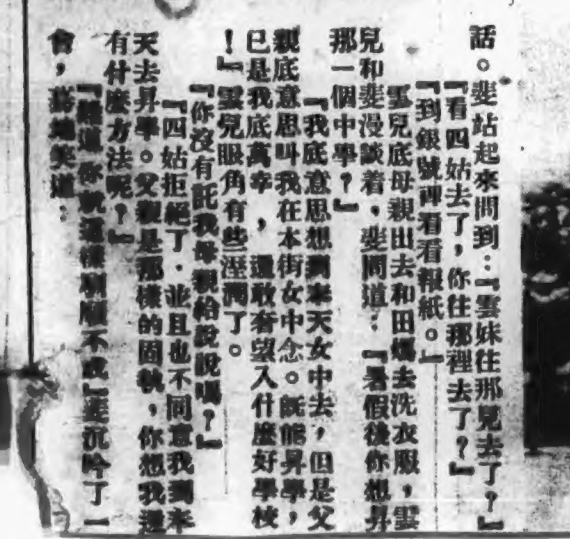 話。斐站起來問到：『雲妹往那兒去了？』
『看四姑去了，你往那裡去了？』
『到銀號裡看看報紙。』
雲兒底母親出去和田媽去洗衣服，雲
兒和斐漫談着，斐問道：『暑假後你想昇
那一個中學？』
『我底意思想到來天女中去，但是父
親底意思叫我在本街女中念。既能昇學，
已是我底萬幸，還敢奢望入什麼好學校
！』雲兒眼角有些溼潤了。
『你沒有託我母親給說說嗎？』
『四姑拒絕了．並且也不同意我到來
天去昇學。父親是那樣的固執，你想我還
有什麼方法呢？』
『難道你就這樣 順不 』斐沉吟了一
會， 地笑道：